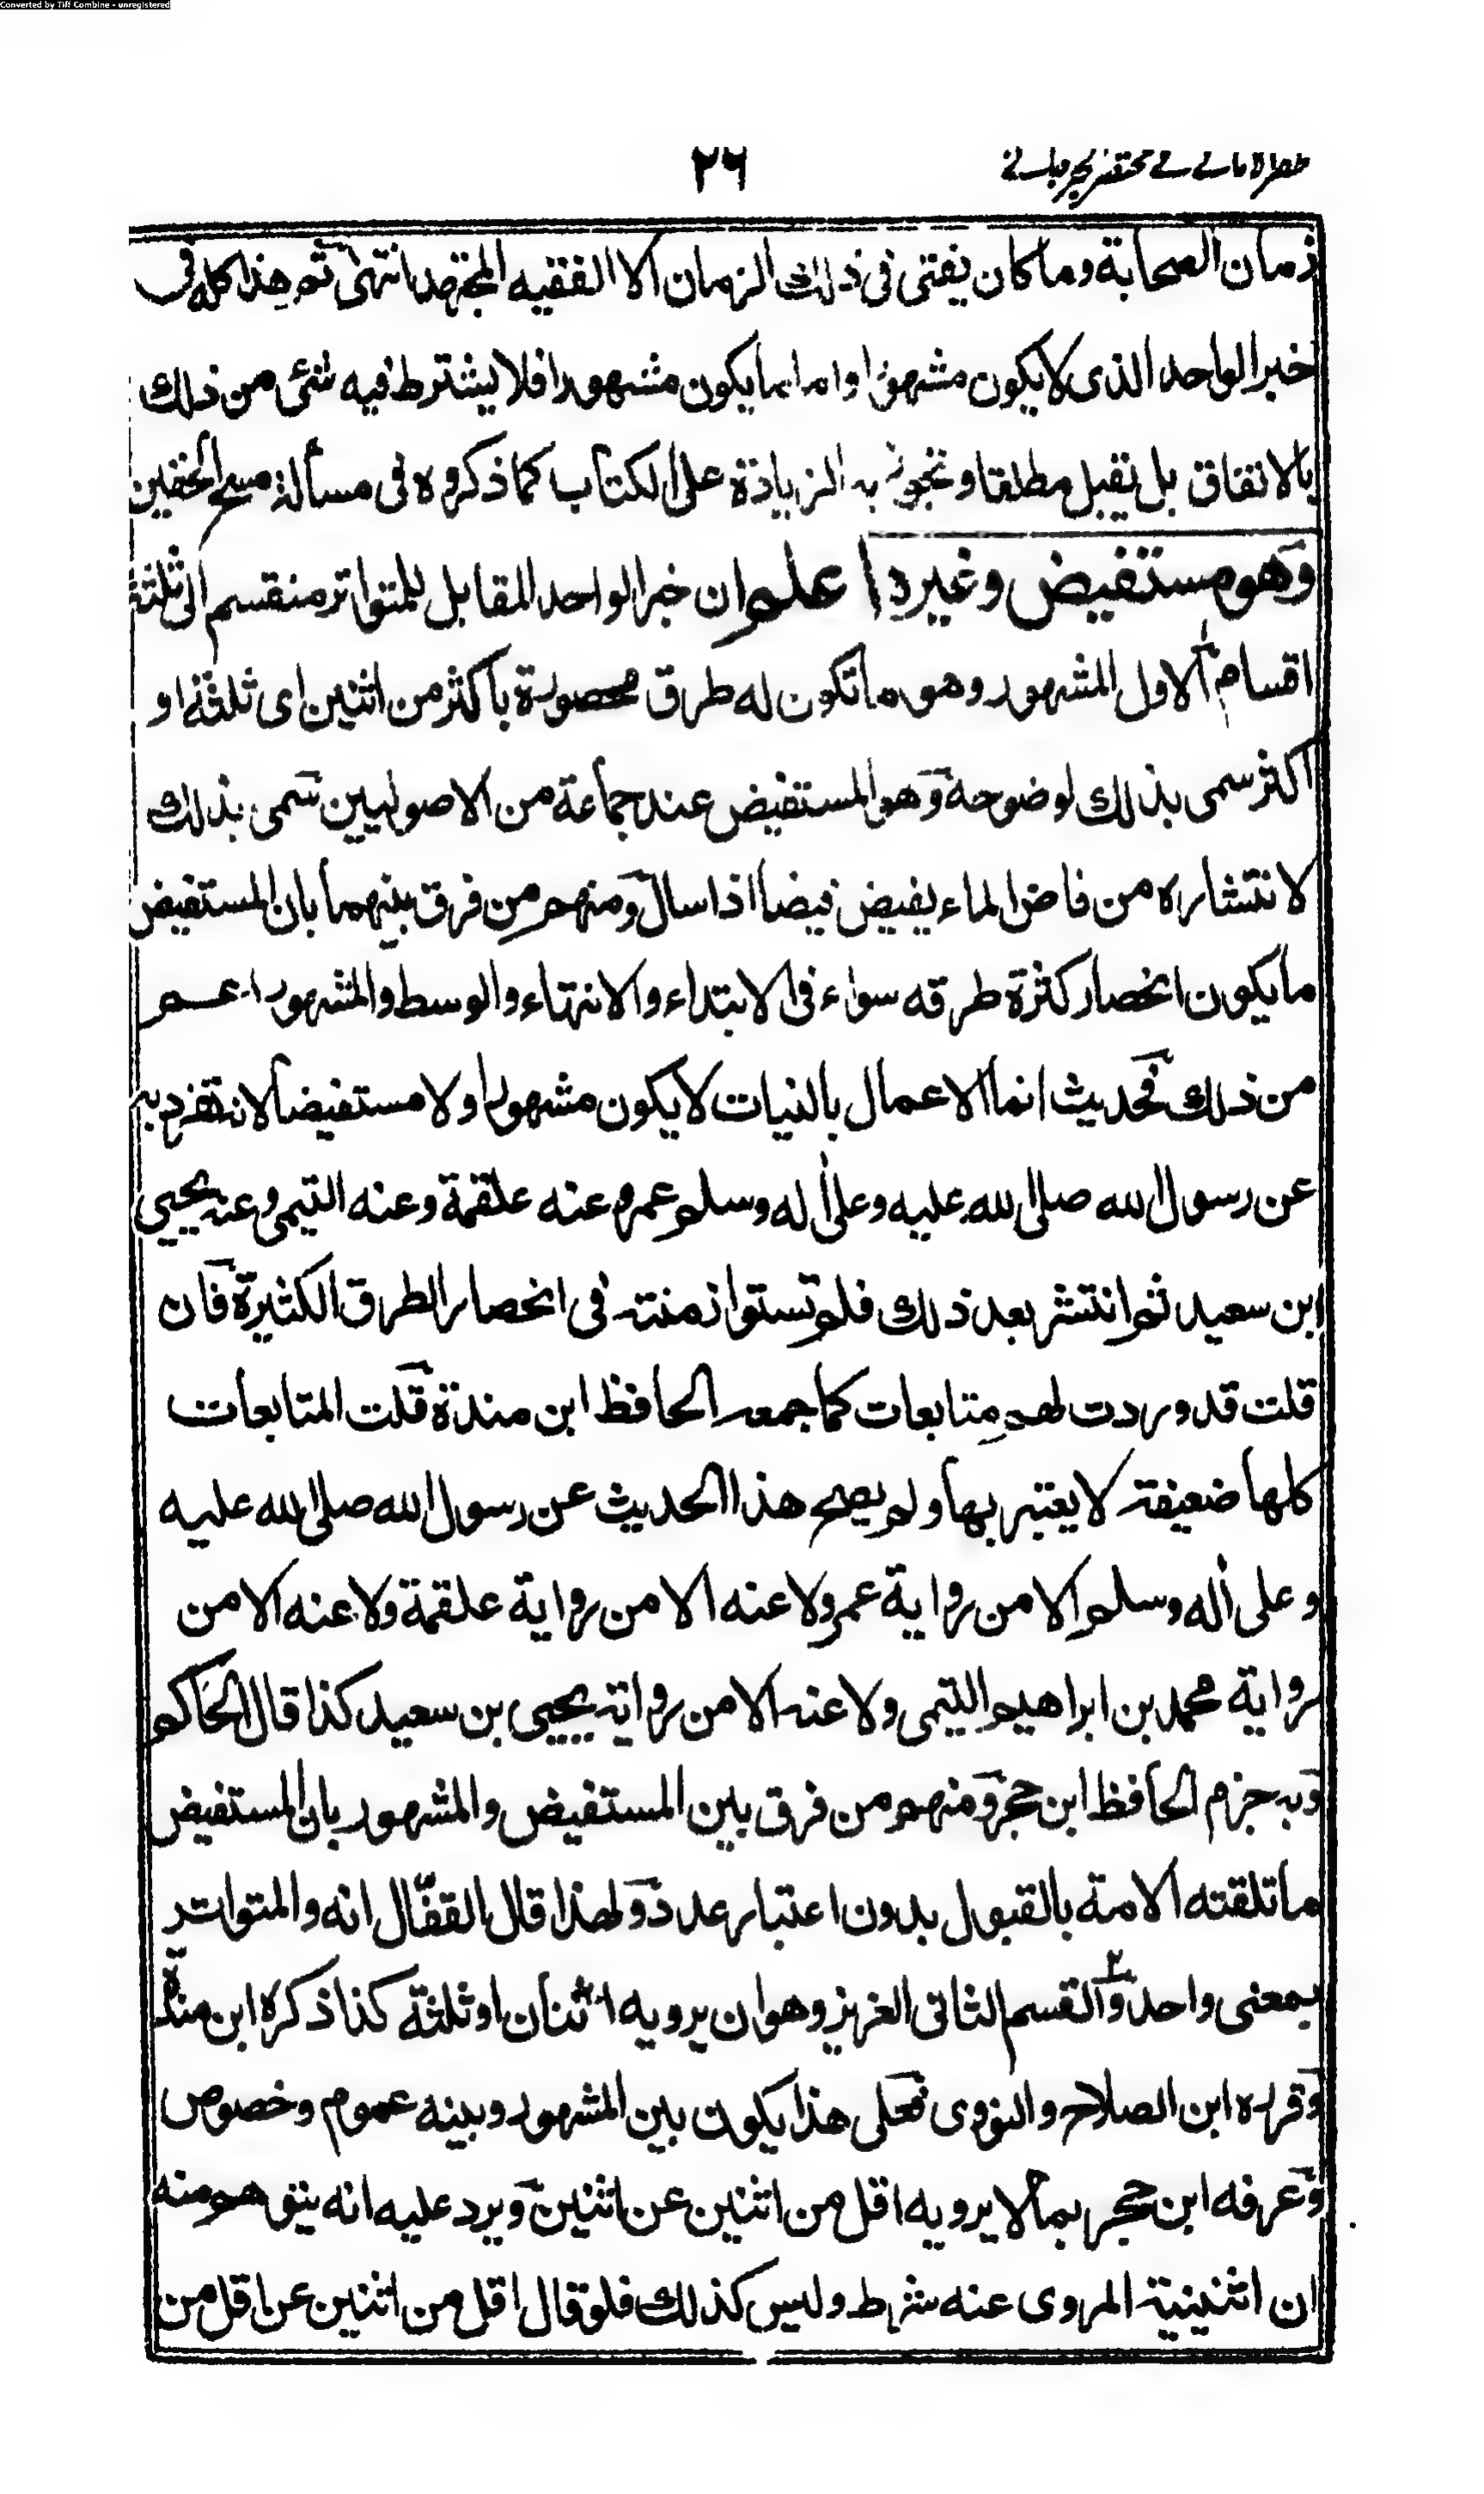 Converted by Tiff Combine - unregistered
ظفر الامانے فے مختصر الجرجانے
٢٦
زمان الصحابة وما كان يفتى فى ذلك الزمان الا الفقيه المجتهد انتهى ثم هذا كله فى
خبر الواحد الذى لا يكون مشهورا واما ما يكون مشهورا فلا يشترط فيه شئ من ذلك
بالاتفاق بل يقبل مطلقا وتجوز به الزيادة على الكتاب كما ذكروه فى مسألة مسح الخفين
وهو مستفيض وغيره اعلم ان خبر الواحد المقابل للمتواتر منقسم الى ثلثة
اقسام الاول المشهور وهو ما تكون له طرق محصورة باكثر من اثنين اى ثلثة او
اكثر سمى بذلك لوضوحه وهو المستفيض عند جماعة من الاصوليين سمى بذلك
لانتشاره من فاض الماء يفيض فيضا اذا سال ومنهم من فرق بينهما بان المستفيض
ما يكون انحصار كثرة طرقه سواء فى الابتداء والانتهاء والوسط والمشهور اعم
من ذلك فحديث انما الاعمال بالنيات لا يكون مشهورا ولا مستفيضا لانه تفرد به
عن رسول الله صلى الله عليه وعلى اله وسلم عمر وعنه علقمة وعنه التيمى وعنه يحيى
ابن سعيد ثم انتشر بعد ذلك فلم تستو ازمنته فى انحصار الطرق الكثيرة فان
قلت قد وردت لهم متابعات كما جمعه الحافظ ابن مندة قلت المتابعات
كلها ضعيفة لا يعتبر بها ولم يصح هذا الحديث عن رسول الله صلى الله عليه
وعلى اله وسلم الا من رواية عمر ولا عنه الا من رواية علقمة ولا عنه الا من
رواية محمد بن ابراهيم التيمى ولا عنه الا من رواية يحيى بن سعيد كذا قال الحاكم
وبه جزم الحافظ ابن حجر ومنهم من فرق بين المستفيض والمشهور بان المستفيض
ما تلقته الامة بالقبول بدون اعتبار عدد ولهذا قال القفّال انه والمتواتر
بمعنى واحد والقسم الثانى العزيز وهو ان يرويه اثنان او ثلثة كذا ذكره ابن مندة
وقرره ابن الصلاح والنووى فعلى هذا يكون بين المشهور وبينه عموم وخصوص
وعرفه ابن حجر بما لا يرويه اقل من اثنين عن اثنين ويرد عليه انه يتوهم منه
ان اثنينية المروى عنه شرط وليس كذلك فلو قال اقل من اثنين عن اقل من